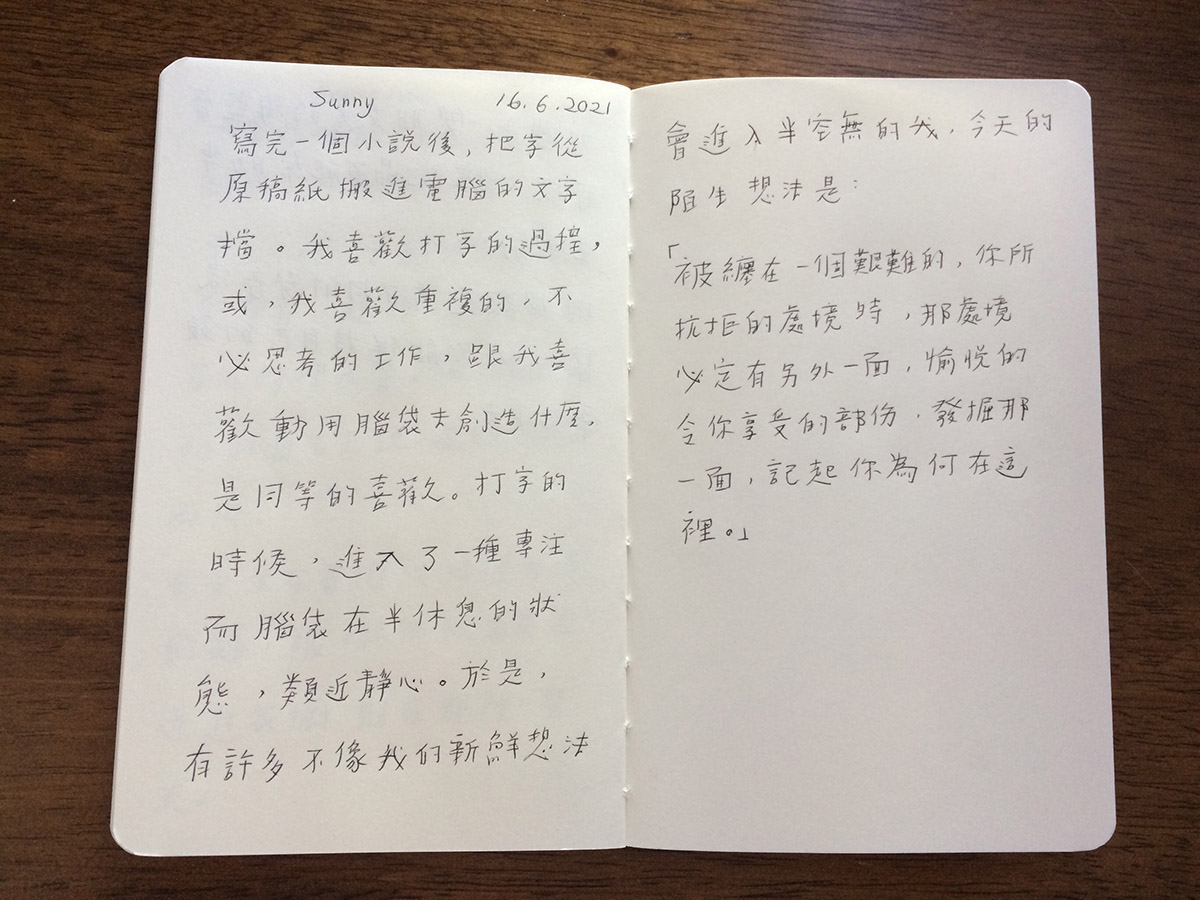 Sunny 16.6.2021
寫完一個小說後，把字從
原稿紙搬進電腦的文字
檔。我喜歡打字的過程，
或，我喜歡重複的，不
必思考的工作，跟我喜
歡動用腦袋去創造什麼，
是同等的喜歡。打字的
時候，進入了一種專注
而腦袋在半休息的狀
態，類近靜心。於是，
有許多不像我的新鮮想法
會進入半空無的我，今天的
陌生想法是：
「被纏在一個艱難的，你所
抗拒的處境時，那處境
必定有另外一面，愉悅的
令你享受的部份，發掘那
一面，記起你為何在這
裡。」